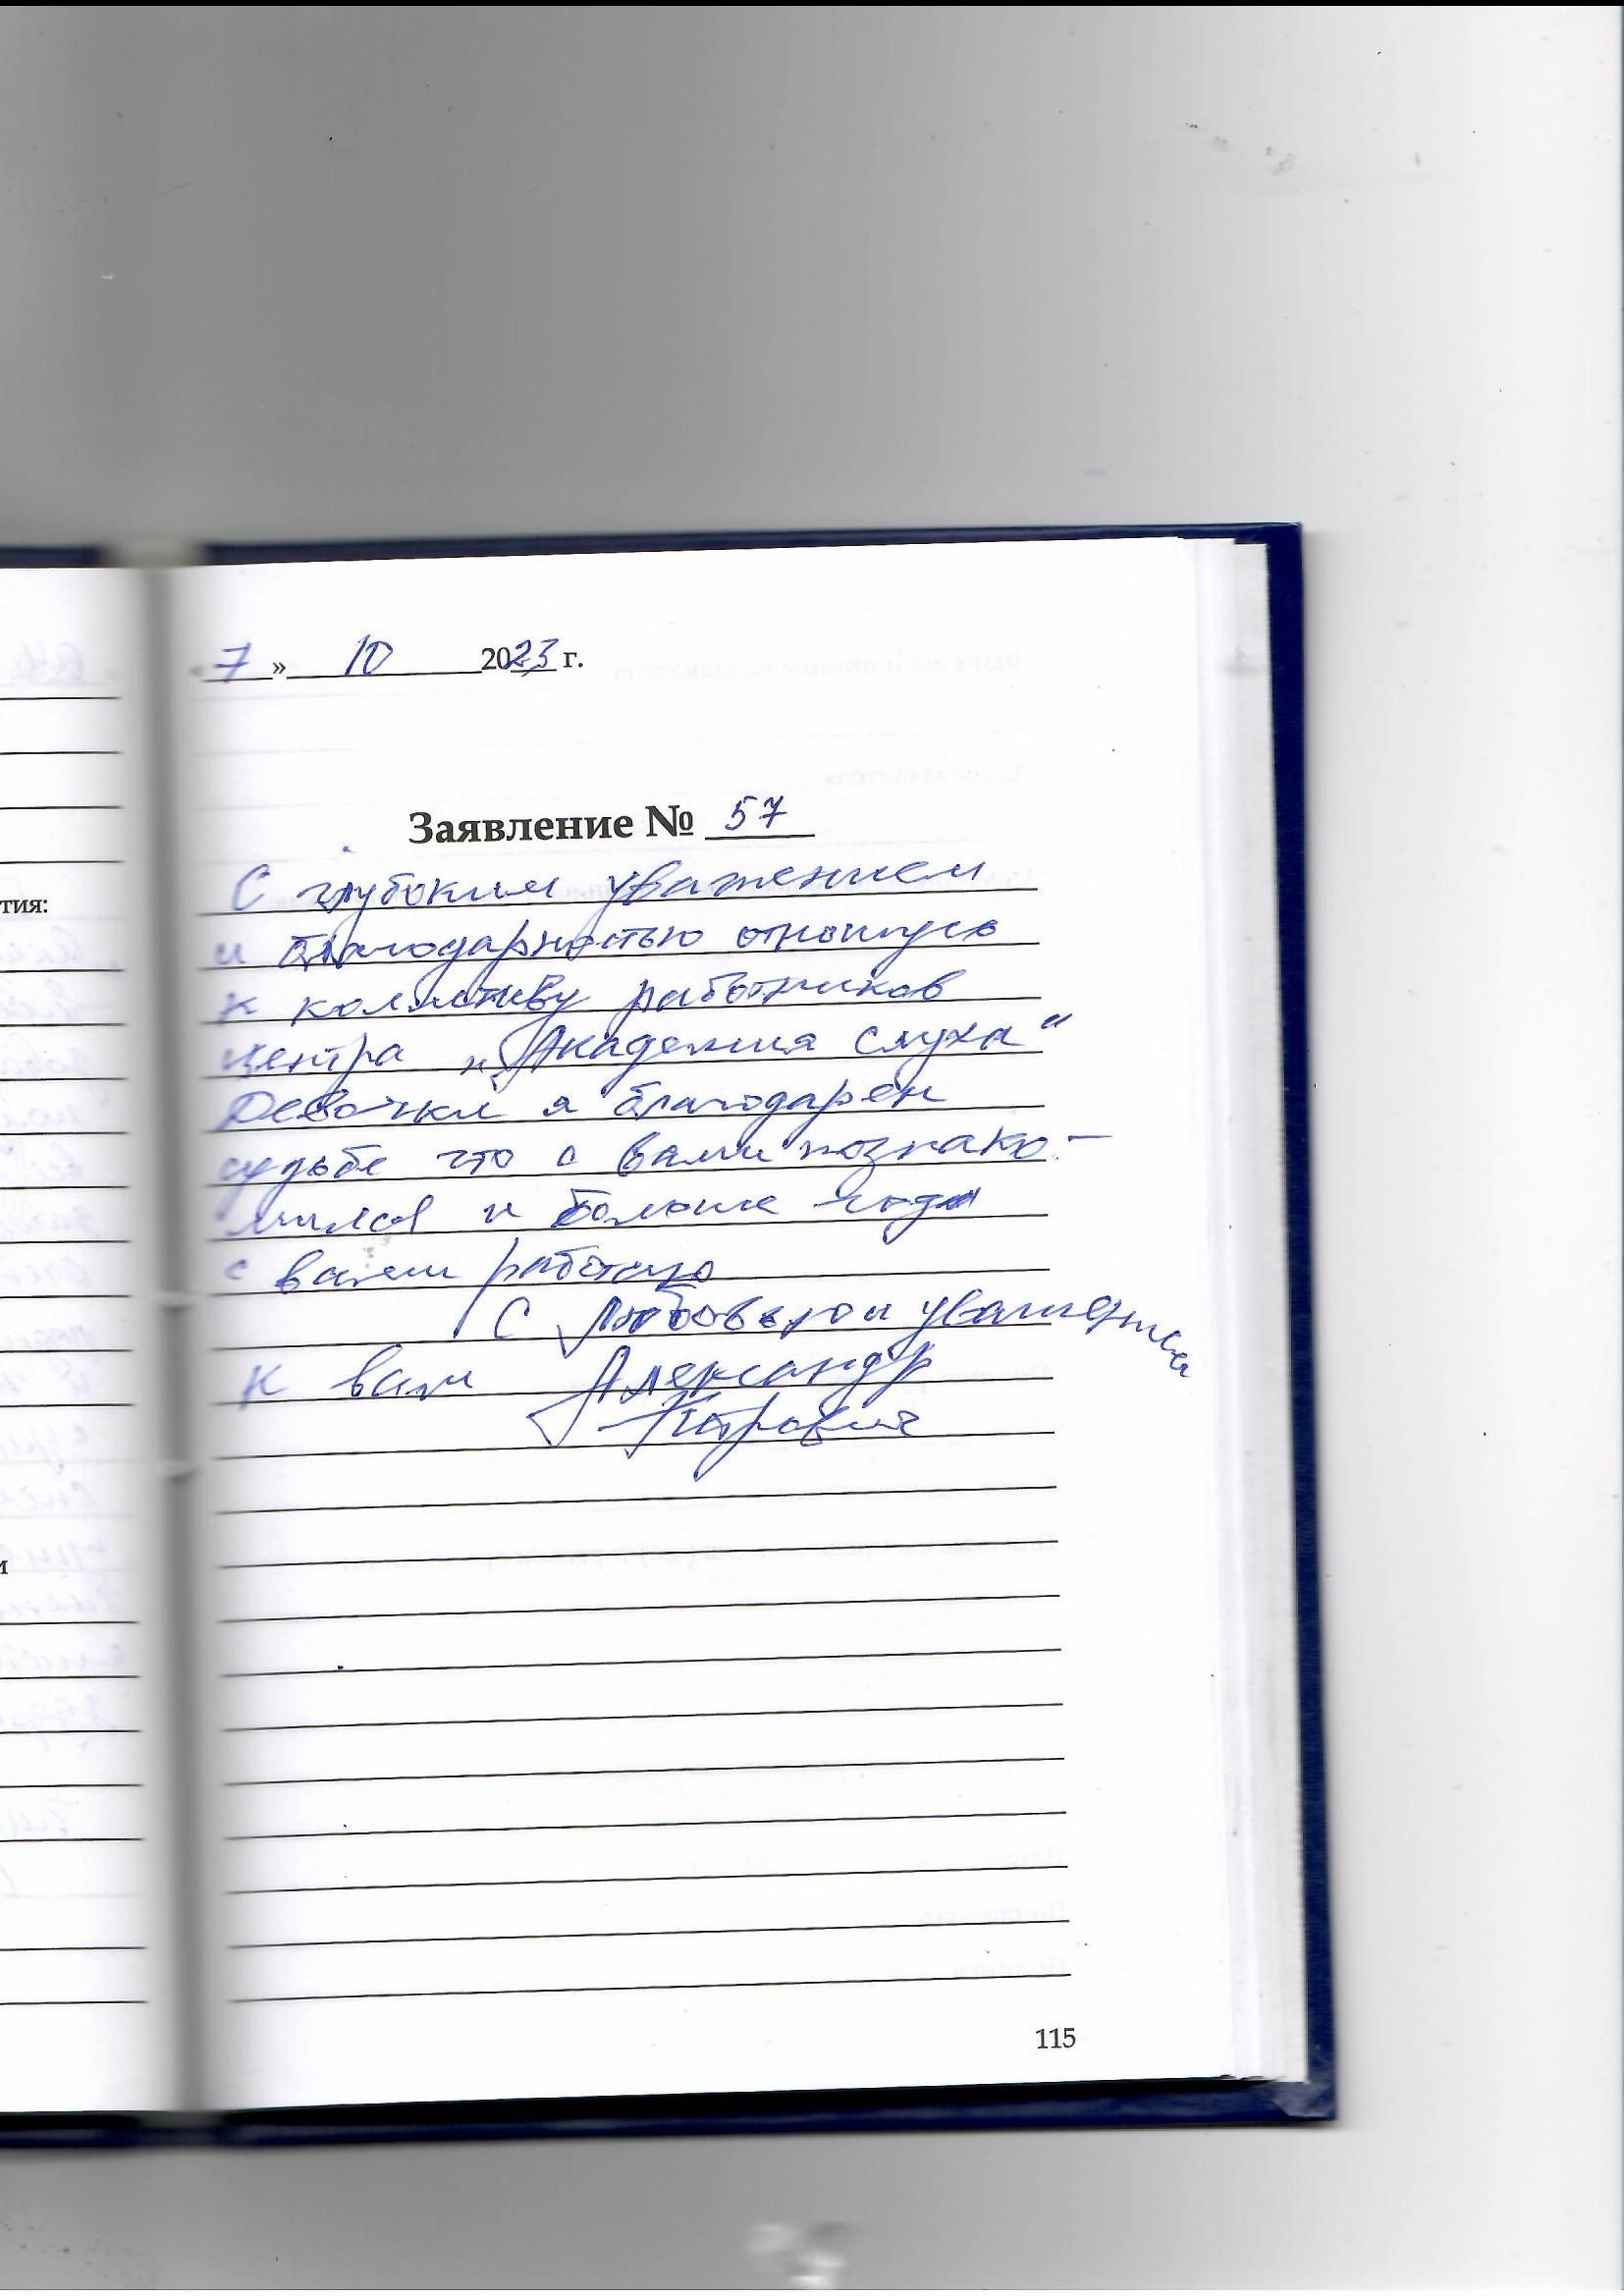 тия:
и
« 7 » 10 2023 г.
Заявление № 57
С глубоким уважением
и благодарностью отношусь
к коллективу работников
центра „Академия слуха“
Девочки я благодарен
судьбе что с вами познако-
мился и больше года
с вами работаю
С любовью и уважением
к вам Александр
Петрович
115